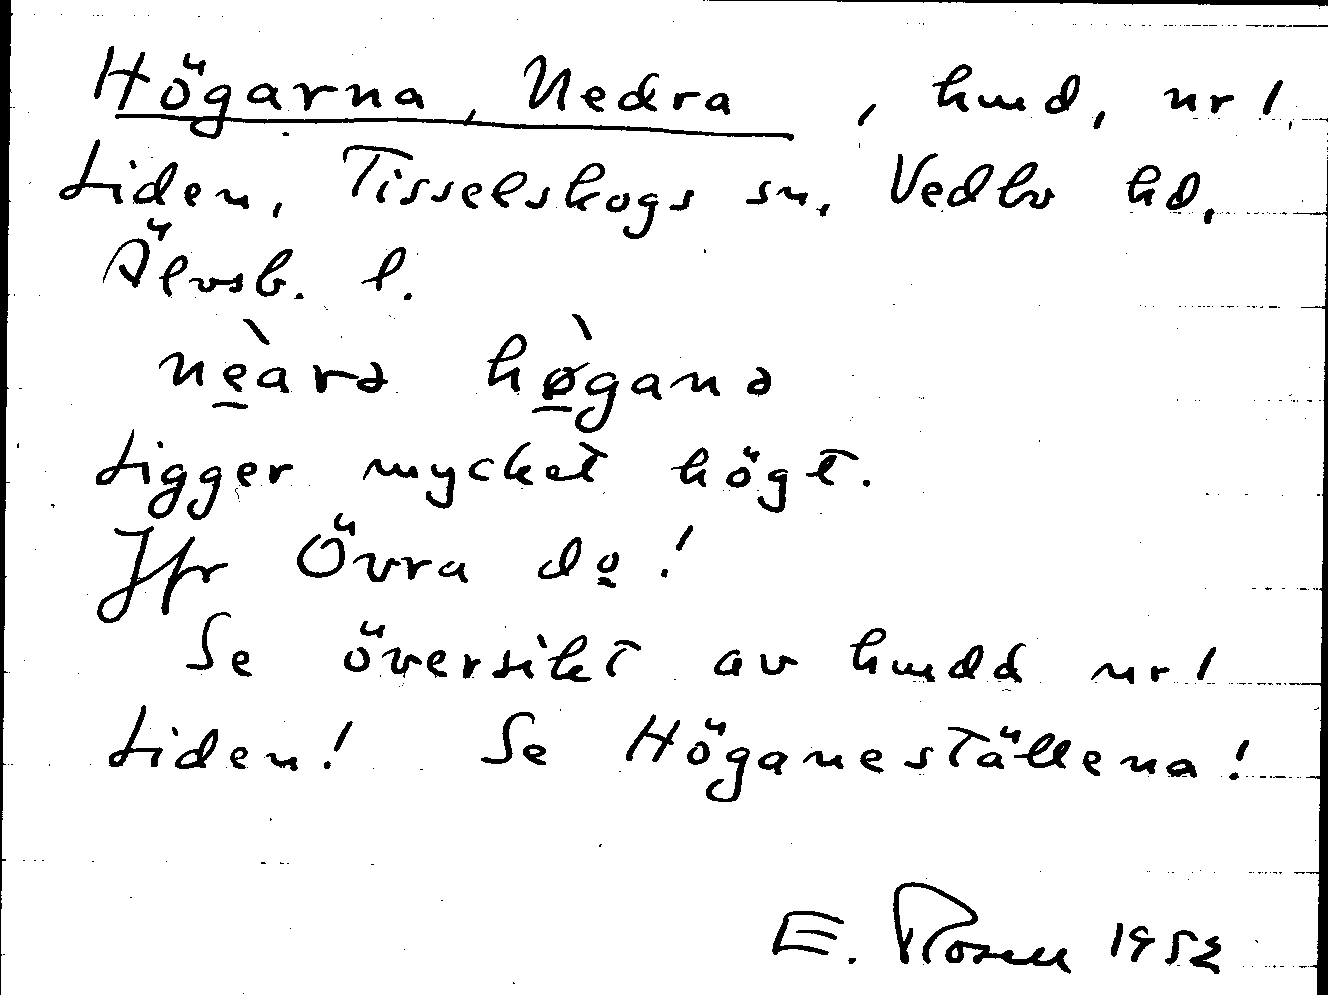 Högarna, Nedra, hmd, nr 1
Liden, Tisselskogs sn, Vedbo hd,
Älvsb. l.
nèarə hø̀ganə
Ligger mycket högt.
Jfr Övra do!
Se översikt av hmdd nr 1
Liden! Se Höganeställena!
E. Rosell 1952